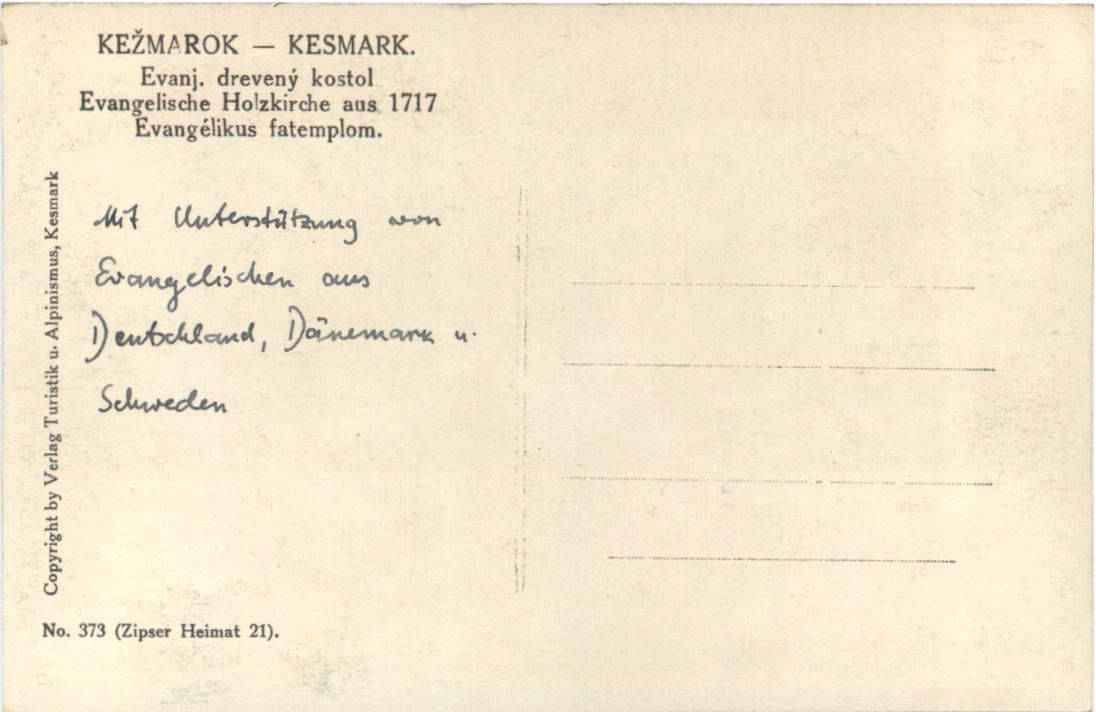 KEŽMAROK — KESMARK.
Evanj. drevený kostol
Evangelische Holzkirche aus 1717
Evangélikus fatemplom.
Mit Unterstützung von
Evangelischen aus
Deutschland, Dänemark u.
Schweden
Copyright by Verlag Turistik u. Alpinismus, Kesmark
No. 373 (Zipser Heimat 21).